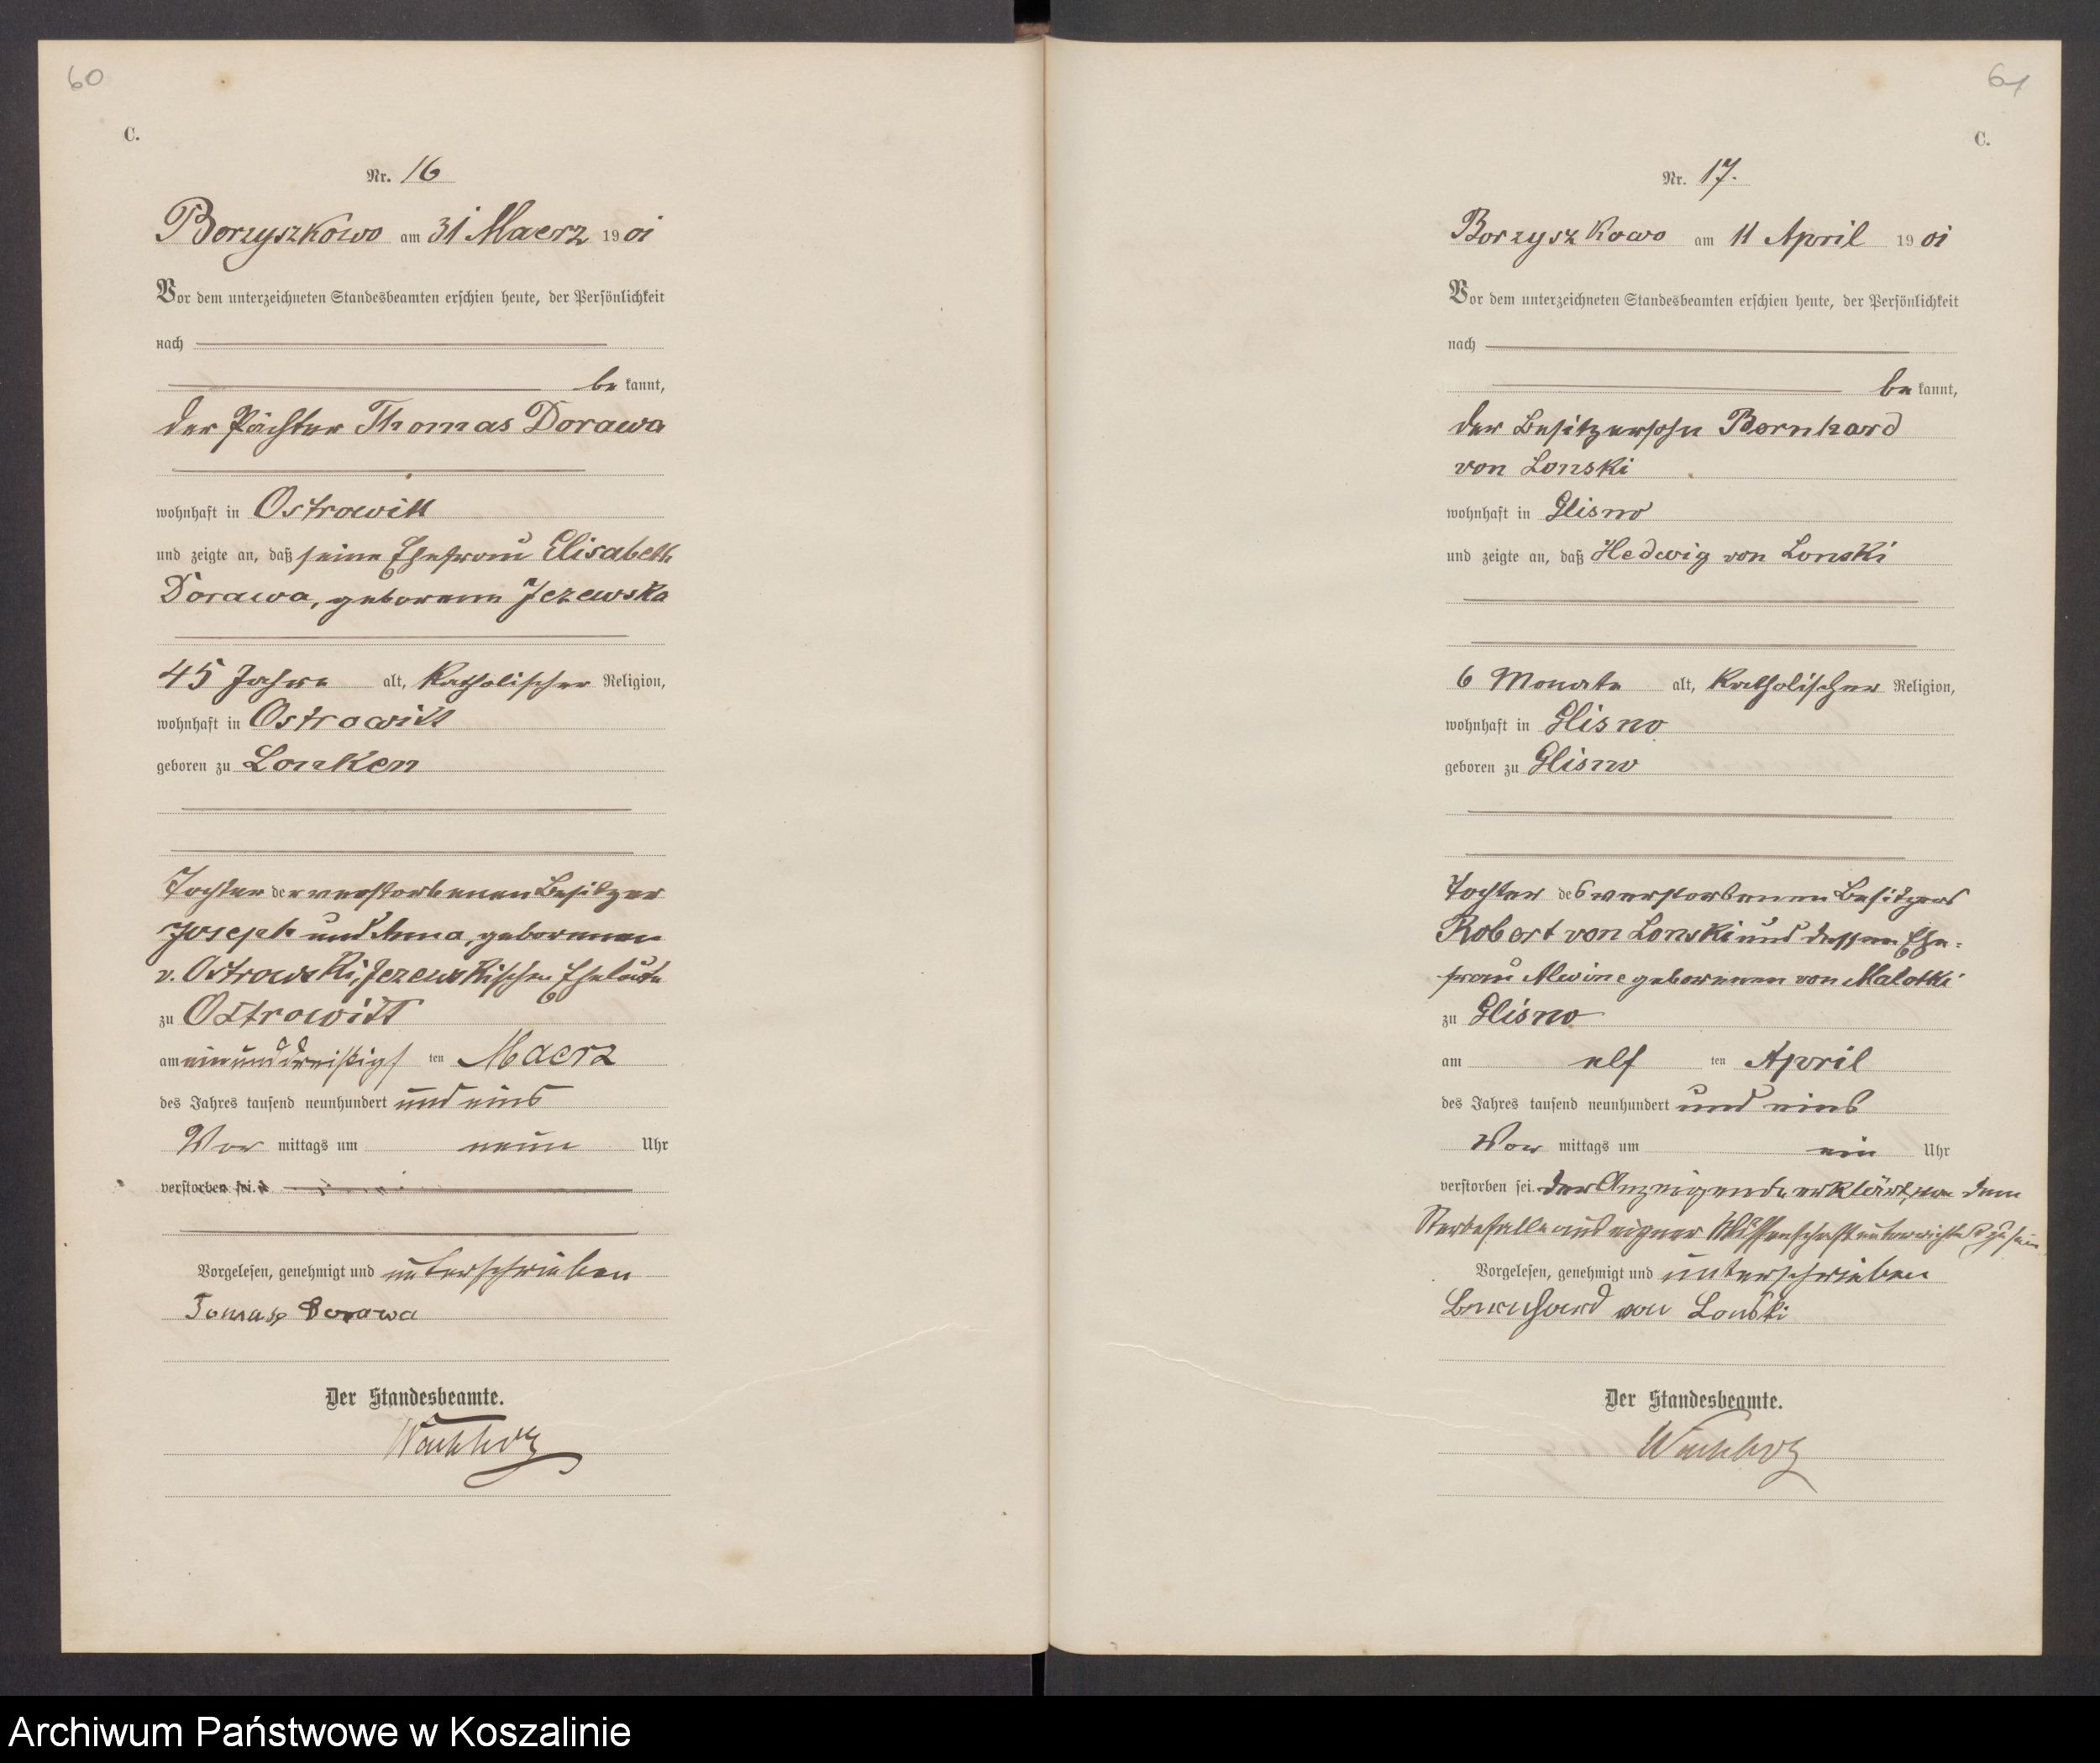 60
C.
Nr. 16
Borzyszkowo am 31 Maerz 1901
Vor dem unterzeichneten Standesbeamten erschien heute, der Persönlichkeit
nach
be kannt,
der Pächter Thomas Dorawa
wohnhaft in Ostrowitt
und zeigte an, daß seine Ehefrau Elisabeth
Dorawa, geborene Jezewska
45 Jahre alt, katholischer Religion,
wohnhaft in Ostrowitt
geboren zu Lonken
Tochter der verstorbenen Besitzer
Joseph und Anna, geborenen
v. Ostrowski, Jezewskischen Eheleute
zu Ostrowitt
am einunddreißigs ten Maerz
des Jahres tausend neunhundert und eins
Vor mittags um neun Uhr
verstorben sei.
Vorgelesen, genehmigt und unterschrieben
Tomasz Dorawa
Der Standesbeamte.
61
C.
Nr. 17.
Borzyszkowo am 11 April 1901
Vor dem unterzeichneten Standesbeamten erschien heute, der Persönlichkeit
nach
be kannt,
der Besitzersohn Bernhard
von Lonski
wohnhaft in Glisno
und zeigte an, daß Hedwig von Lonski
6 Monate alt, katholischer Religion,
wohnhaft in Glisno
geboren zu Glisno
Tochter des verstorbenen Besitzers
Robert von Lonski und dessen Ehe-
frau Alwine geborenen von Malotki
zu Glisno
am elf ten April
des Jahres tausend neunhundert und eins
Vor mittags um ein Uhr
verstorben sei. Der Anzeigende erklärt, von dem
Sterbefalle aus eigner Wissenschaft unterrichtet zu sein
Vorgelesen, genehmigt und unterschrieben
Bernhard von Lonski
Der Standesbeamte.
Archiwum Państwowe w Koszalinie